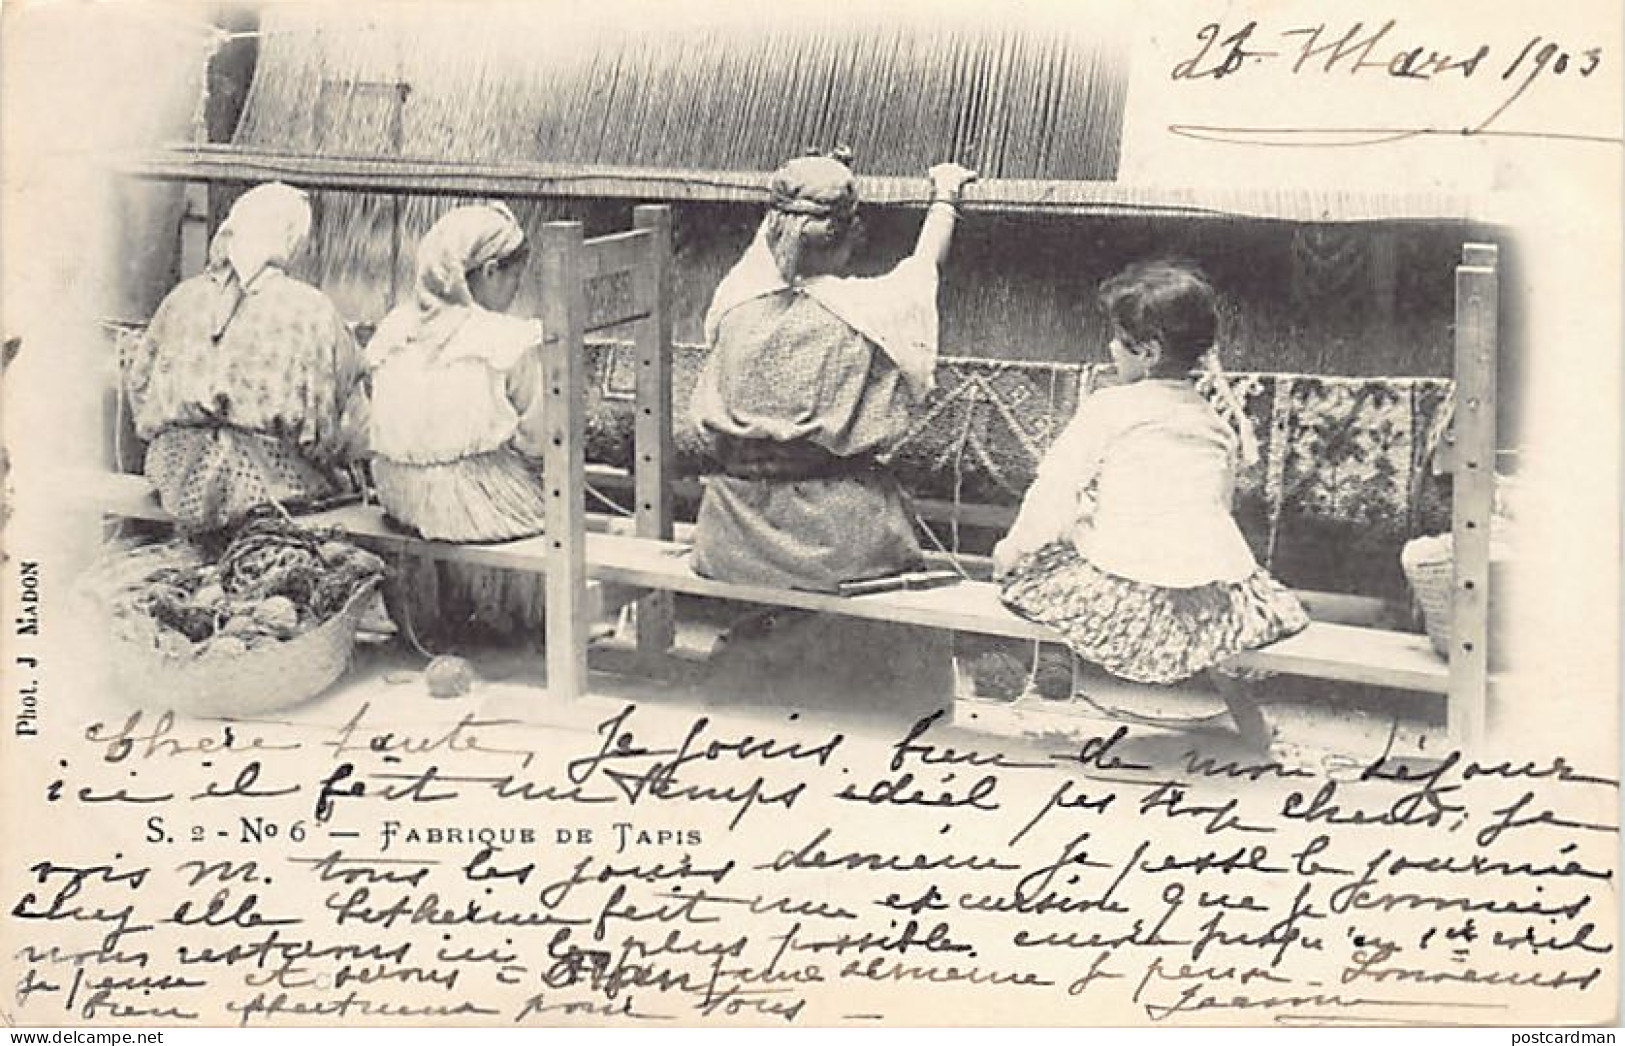 Mars 1903
Phot. J MADON
Chère tante, Je jouis bien de mon séjour
ici il fait un temps idéal pas trop chaud, je
S. 2 - No 6 — FABRIQUE DE TAPIS
vois M. tous les jours demain je passe la journée
chez elle Catherine fait une excursion que je connais
nous restons ici le plus possible encore jusqu'au 1er avril
je pense et serons à une semaine je pense. Souvenirs
bien affectueux pour tous —
postcardman